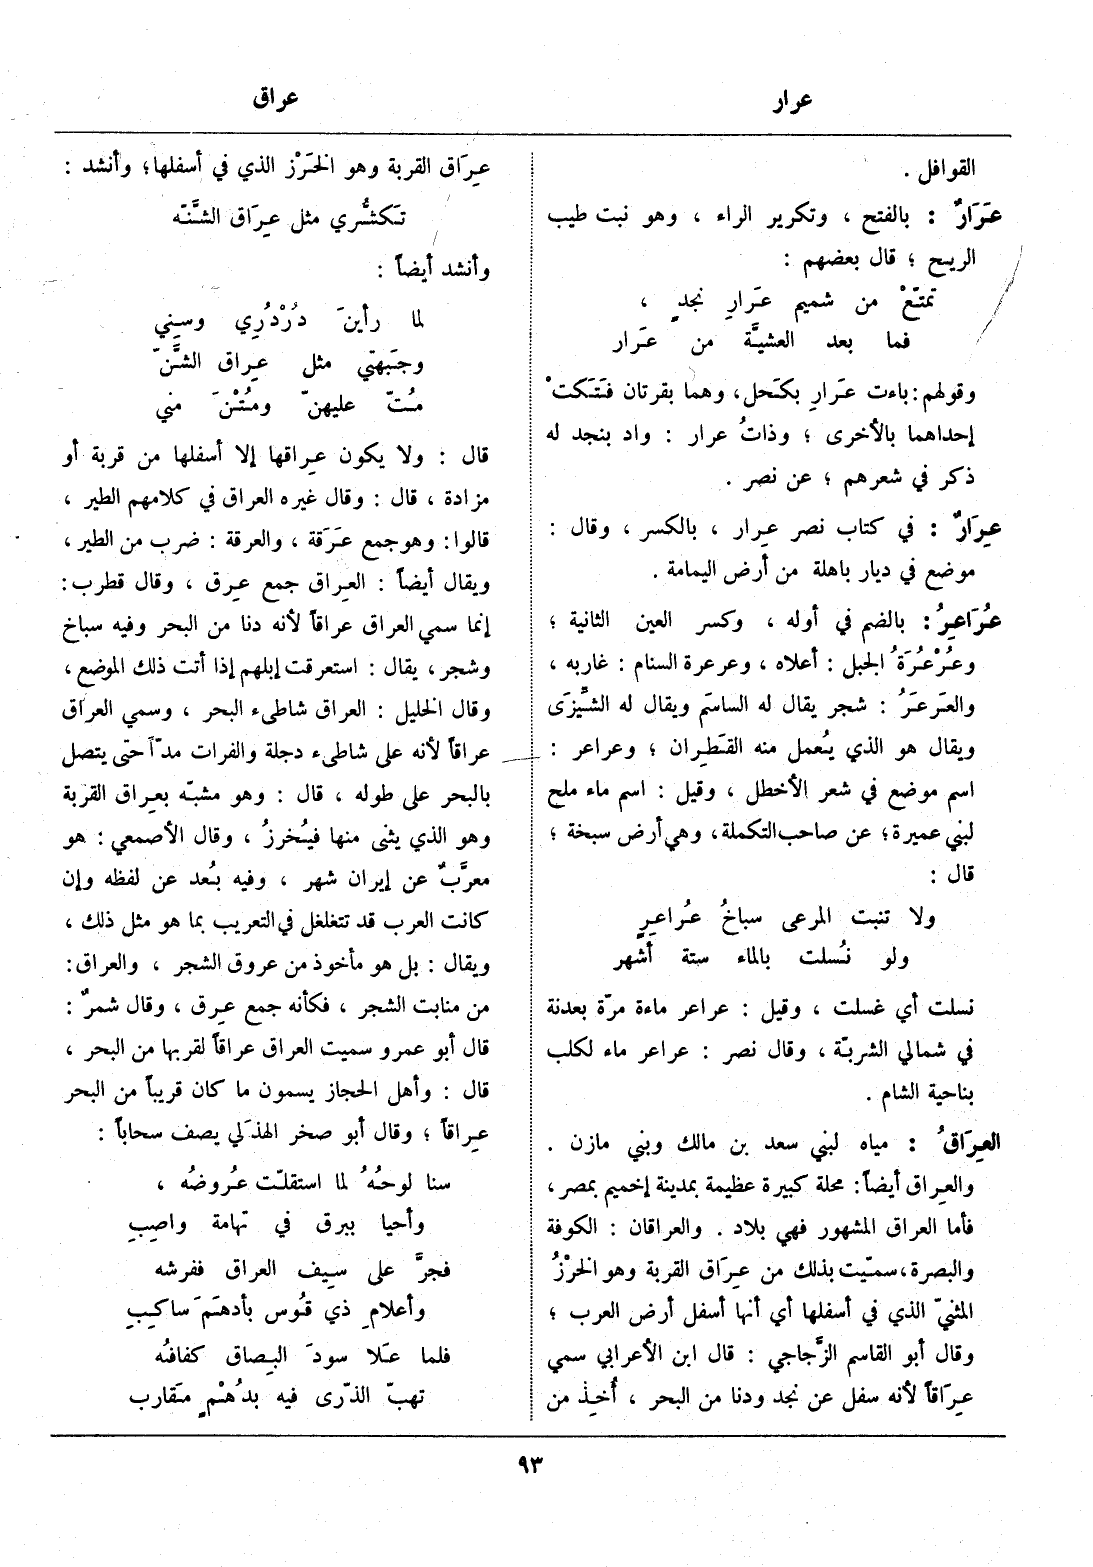 عرار
عراق
القوافل .
عَرَارٌ : بالفتح ، وتكرير الراء ، وهو نبت طيب
الريح ؛ قال بعضهم :
تمتّعْ من شميم عَرارِ نجدٍ ،
فما بعد العشيَّة من عَرار
وقولهم : باءت عَرارِ بكَحل ، وهما بقرتان فتَنَكتْ
إحداهما بالأخرى ؛ وذاتُ عرار : واد بنجد له
ذكر في شعرهم ؛ عن نصر .
عِرَارٌ : في كتاب نصر عِرار ، بالكسر ، وقال :
موضع في ديار باهلة من أرض اليمامة .
عُرَاعِرُ : بالضم في أوله ، وكسر العين الثانية ؛
وعُرْعُرَةُ الجبل : أعلاه ، وعرعرة السنام : غاربه ،
والعَرعَرُ : شجر يقال له الساسَم ويقال له الشِّيزَى
ويقال هو الذي يُعمل منه القَطِران ؛ وعراعر :
اسم موضع في شعر الأخطل ، وقيل : اسم ماء ملح
لبني عميرة ؛ عن صاحب التكملة ، وهي أرض سبخة ؛
قال :
ولا تنبت المرعى سباخُ عُراعِرٍ
ولو نُسلت بالماء ستة أشهر
نسلت أي غسلت ، وقيل : عراعر ماءة مرّة بعدنة
في شمالي الشربّة ، وقال نصر : عراعر ماء لكلب
بناحية الشام .
العِرَاقُ : مياه لبني سعد بن مالك وبني مازن .
والعِراق أيضاً : محلة كبيرة عظيمة بمدينة إخميم بمصر ،
فأما العراق المشهور فهي بلاد . والعراقان : الكوفة
والبصرة ، سمّيت بذلك من عِرَاق القربة وهو الخَرْزُ
المثنيّ الذي في أسفلها أي أنها أسفل أرض العرب ؛
وقال أبو القاسم الزَّجاجي : قال ابن الأعرابي سمي
عِرَاقاً لأنه سفل عن نجد ودنا من البحر ، أُخِذ من
عِرَاق القربة وهو الخَرْز الذي في أسفلها ؛ وأنشد :
تَكشُّري مثل عِرَاق الشنَّتَه
وأنشد أيضاً :
لما رأينَ دُرْدُرِي وسِنِي
وجَبهتي مثل عِراق الشَّنّ
مُتّ عليهنّ ومُتْنَ مني
قال : ولا يكون عراقها إلا أسفلها من قربة أو
مزادة ، قال : وقال غيره العراق في كلامهم الطير ،
قالوا : وهو جمع عَرَقة ، والعرقة : ضرب من الطير ،
ويقال أيضاً : العِراق جمع عِرق ، وقال قطرب :
إنما سمي العراق عراقاً لأنه دنا من البحر وفيه سباخ
وشجر ، يقال : استعرقت إبلهم إذا أتت ذلك الموضع ،
وقال الخليل : العراق شاطىء البحر ، وسمي العراق
عراقاً لأنه على شاطىء دجلة والفرات مدّاً حتى يتصل
بالبحر على طوله ، قال : وهو مشبّه بعِراق القربة
وهو الذي يثنى منها فيُخرزُ ، وقال الأصمعي : هو
معرَّبٌ عن إيران شهر ، وفيه بُعد عن لفظه وإن
كانت العرب قد تتغلغل في التعريب بما هو مثل ذلك ،
ويقال : بل هو مأخوذ من عروق الشجر ، والعراق :
من منابت الشجر ، فكأنه جمع عِرق ، وقال شمرٌ :
قال أبو عمرو سميت العراق عراقاً لقربها من البحر ،
قال : وأهل الحجاز يسمون ما كان قريباً من البحر
عِراقاً ؛ وقال أبو صخر الهذَلي يصف سحاباً :
سنا لوحُهُ لما استقلّت عُروضُه ،
وأحيا ببرق في تهامة واصِبِ
فجرَّ على سِيف العراق ففرشه
وأعلامِ ذي قُوس بأدهَمَ ساكِبِ
فلما عَلا سودَ البِصاق كفافُه
تهبّ الذّرى فيه بدُهْمٍ مَقارب
٩٣